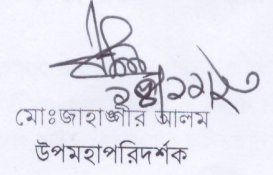 মোঃ জাহাঙ্গীর আলম
উপমহাপরিদর্শক